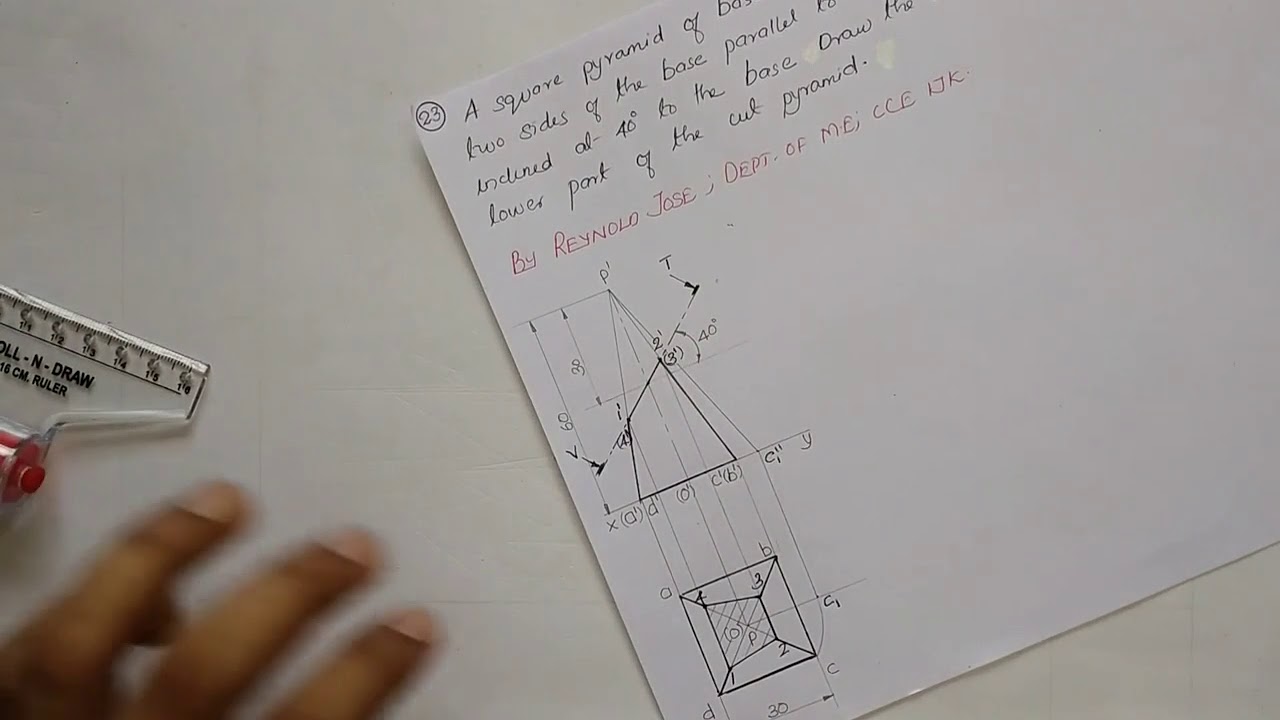 23 A square pyramid of bas
two sides of the base parallel to
inclined at 40° to the base Draw the
lower part of the cut pyramid.
By REYNOLD JOSE ; DEPT. OF M.E; CCE IJK.
P'
T
2'
(3')
40°
30
60
1'
(4')
V
x (a') d' (o') c'(b') c1" y
a
4
b
3
(o)
P
c1
2
1
c
d
30
ROLL - N - DRAW
16 CM. RULER
11 12 13 14 15 16